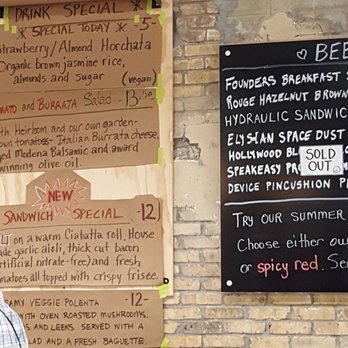 DRINK SPECIAL
* SPECIAL TODAY * -5-
Strawberry/Almond Horchata
Organic brown jasmine rice,
almonds and sugar (vegan)
TOMATO and BURRATA Salad -13.50
with Heirloom and our own garden-
grown tomatoes- Italian Burrata cheese,
aged Modena Balsamic and award
winning olive oil.
NEW
SANDWICH SPECIAL -12
on a warm Ciabatta roll, House
made garlic aioli, thick cut bacon
(artificial nitrate-free) and fresh
tomatoes all topped with crispy frisee.
VEGGIE POLENTA -12-
WITH OVEN ROASTED MUSHROOMS,
AND LEEKS. SERVED WITH A
SALAD AND A FRESH BAGUETTE.
BEE
FOUNDERS BREAKFAST
ROUGE HAZELNUT BROWN
HYDRAULIC SANDWIC
ELYSIAN SPACE DUST
HOLLYWOOD BL
SPEAKEASY PRO
DEVICE PINCUSHION P
SOLD
OUT
TRY OUR SUMMER
Choose either ou
or spicy red. Se